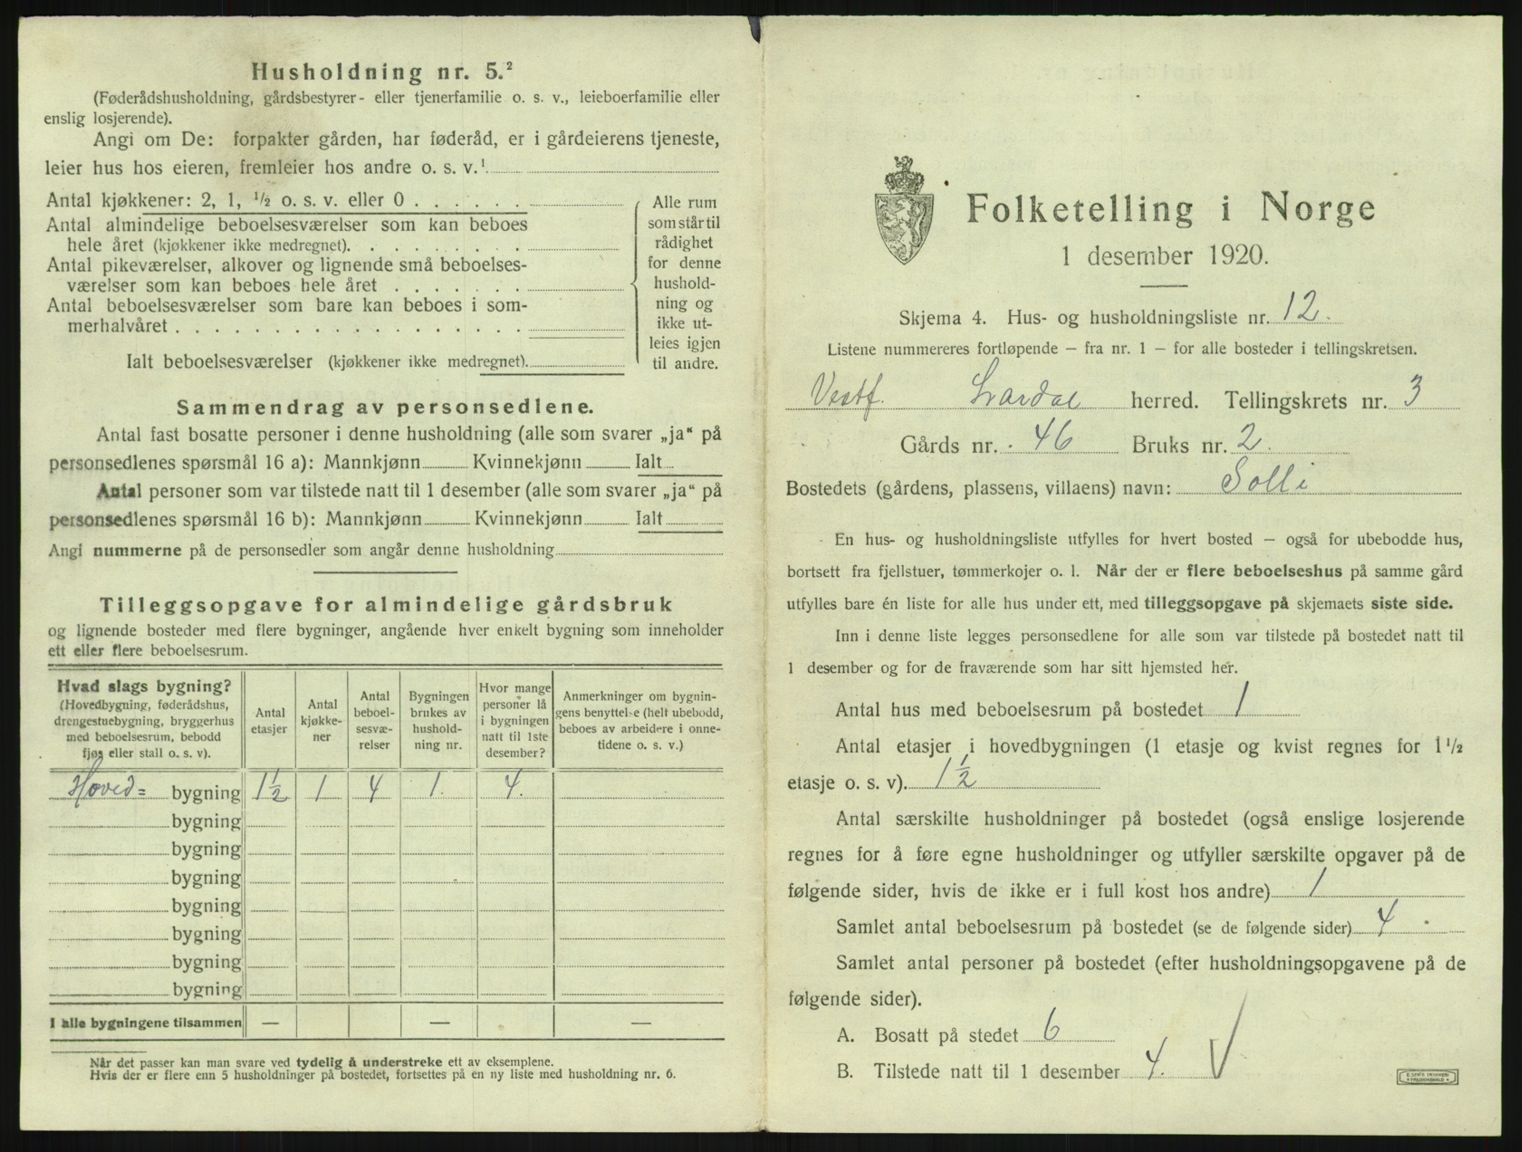 Husholdning nr. 5.²
(Føderådshusholdning, gårdsbestyrer- eller tjenerfamilie o. s. v., leieboerfamilie eller
enslig losjerende).
Angi om De: forpakter gården, har føderåd, er i gårdeierens tjeneste,
leier hus hos eieren, fremleier hos andre o. s. v.¹
Antal kjøkkener: 2, 1, ½ o. s. v. eller 0 . . . . . .
Antal almindelige beboelsesværelser som kan beboes
hele året (kjøkkener ikke medregnet). . . . . . . . .
Antal pikeværelser, alkover og lignende små beboelses-
værelser som kan beboes hele året . . . . . . .
Antal beboelsesværelser som bare kan beboes i som-
merhalvåret . . . . . . . . . . . . . . . . . .
Ialt beboelsesværelser (kjøkkener ikke medregnet).
Alle rum
som står til
rådighet
for denne
hushold-
ning og
ikke ut-
leies igjen
til andre.
Sammendrag av personsedlene.
Antal fast bosatte personer i denne husholdning (alle som svarer „ja“ på
personsedlenes spørsmål 16 a): Mannkjønn Kvinnekjønn Ialt
Antal personer som var tilstede natt til 1 desember (alle som svarer „ja“ på
personsedlenes spørsmål 16 b): Mannkjønn Kvinnekjønn Ialt
Angi nummerne på de personsedler som angår denne husholdning
Tilleggsopgave for almindelige gårdsbruk
og lignende bosteder med flere bygninger, angående hver enkelt bygning som inneholder
ett eller flere beboelsesrum.
Hvad slags bygning?
(Hovedbygning, føderådshus,
drengestuebygning, bryggerhus
med beboelsesrum, bebodd
fjøs eller stall o. s. v).
Antal
etasjer
Antal
kjøkke-
ner
Antal
beboel-
sesvæ-
relser
Bygningen
brukes av
hushold-
ning nr.
Hvor mange
personer lå
i bygningen
natt til 1ste
desember?
Anmerkninger om bygnin-
gens benyttelse (helt ubebodd,
beboes av arbeidere i onne-
tidene o. s. v.)
Hoved= bygning 1½ 1 4 1. 4.
bygning
bygning
bygning
bygning
bygning
bygning
bygning
I alle bygningene tilsammen — — —
Når det passer kan man svare ved tydelig å understreke ett av eksemplene.
Hvis der er flere enn 5 husholdninger på bostedet, fortsettes på en ny liste med husholdning nr. 6.
Folketelling i Norge
1 desember 1920.
Skjema 4. Hus- og husholdningsliste nr. 12.
Listene nummereres fortløpende — fra nr. 1 — for alle bosteder i tellingskretsen.
Vestf. Lardal herred. Tellingskrets nr. 3
Gårds nr. 46 Bruks nr. 2.
Bostedets (gårdens, plassens, villaens) navn: Solli
En hus- og husholdningsliste utfylles for hvert bosted — også for ubebodde hus,
bortsett fra fjellstuer, tømmerkojer o. l. Når der er flere beboelseshus på samme gård
utfylles bare én liste for alle hus under ett, med tilleggsopgave på skjemaets siste side.
Inn i denne liste legges personsedlene for alle som var tilstede på bostedet natt til
1 desember og for de fraværende som har sitt hjemsted her.
Antal hus med beboelsesrum på bostedet 1
Antal etasjer i hovedbygningen (1 etasje og kvist regnes for 1½
etasje o. s. v). 1½
Antal særskilte husholdninger på bostedet (også enslige losjerende
regnes for å føre egne husholdninger og utfyller særskilte opgaver på de
følgende sider, hvis de ikke er i full kost hos andre) 1
Samlet antal beboelsesrum på bostedet (se de følgende sider) 4
Samlet antal personer på bostedet (efter husholdningsopgavene på de
følgende sider).
A. Bosatt på stedet 6
B. Tilstede natt til 1 desember 4.